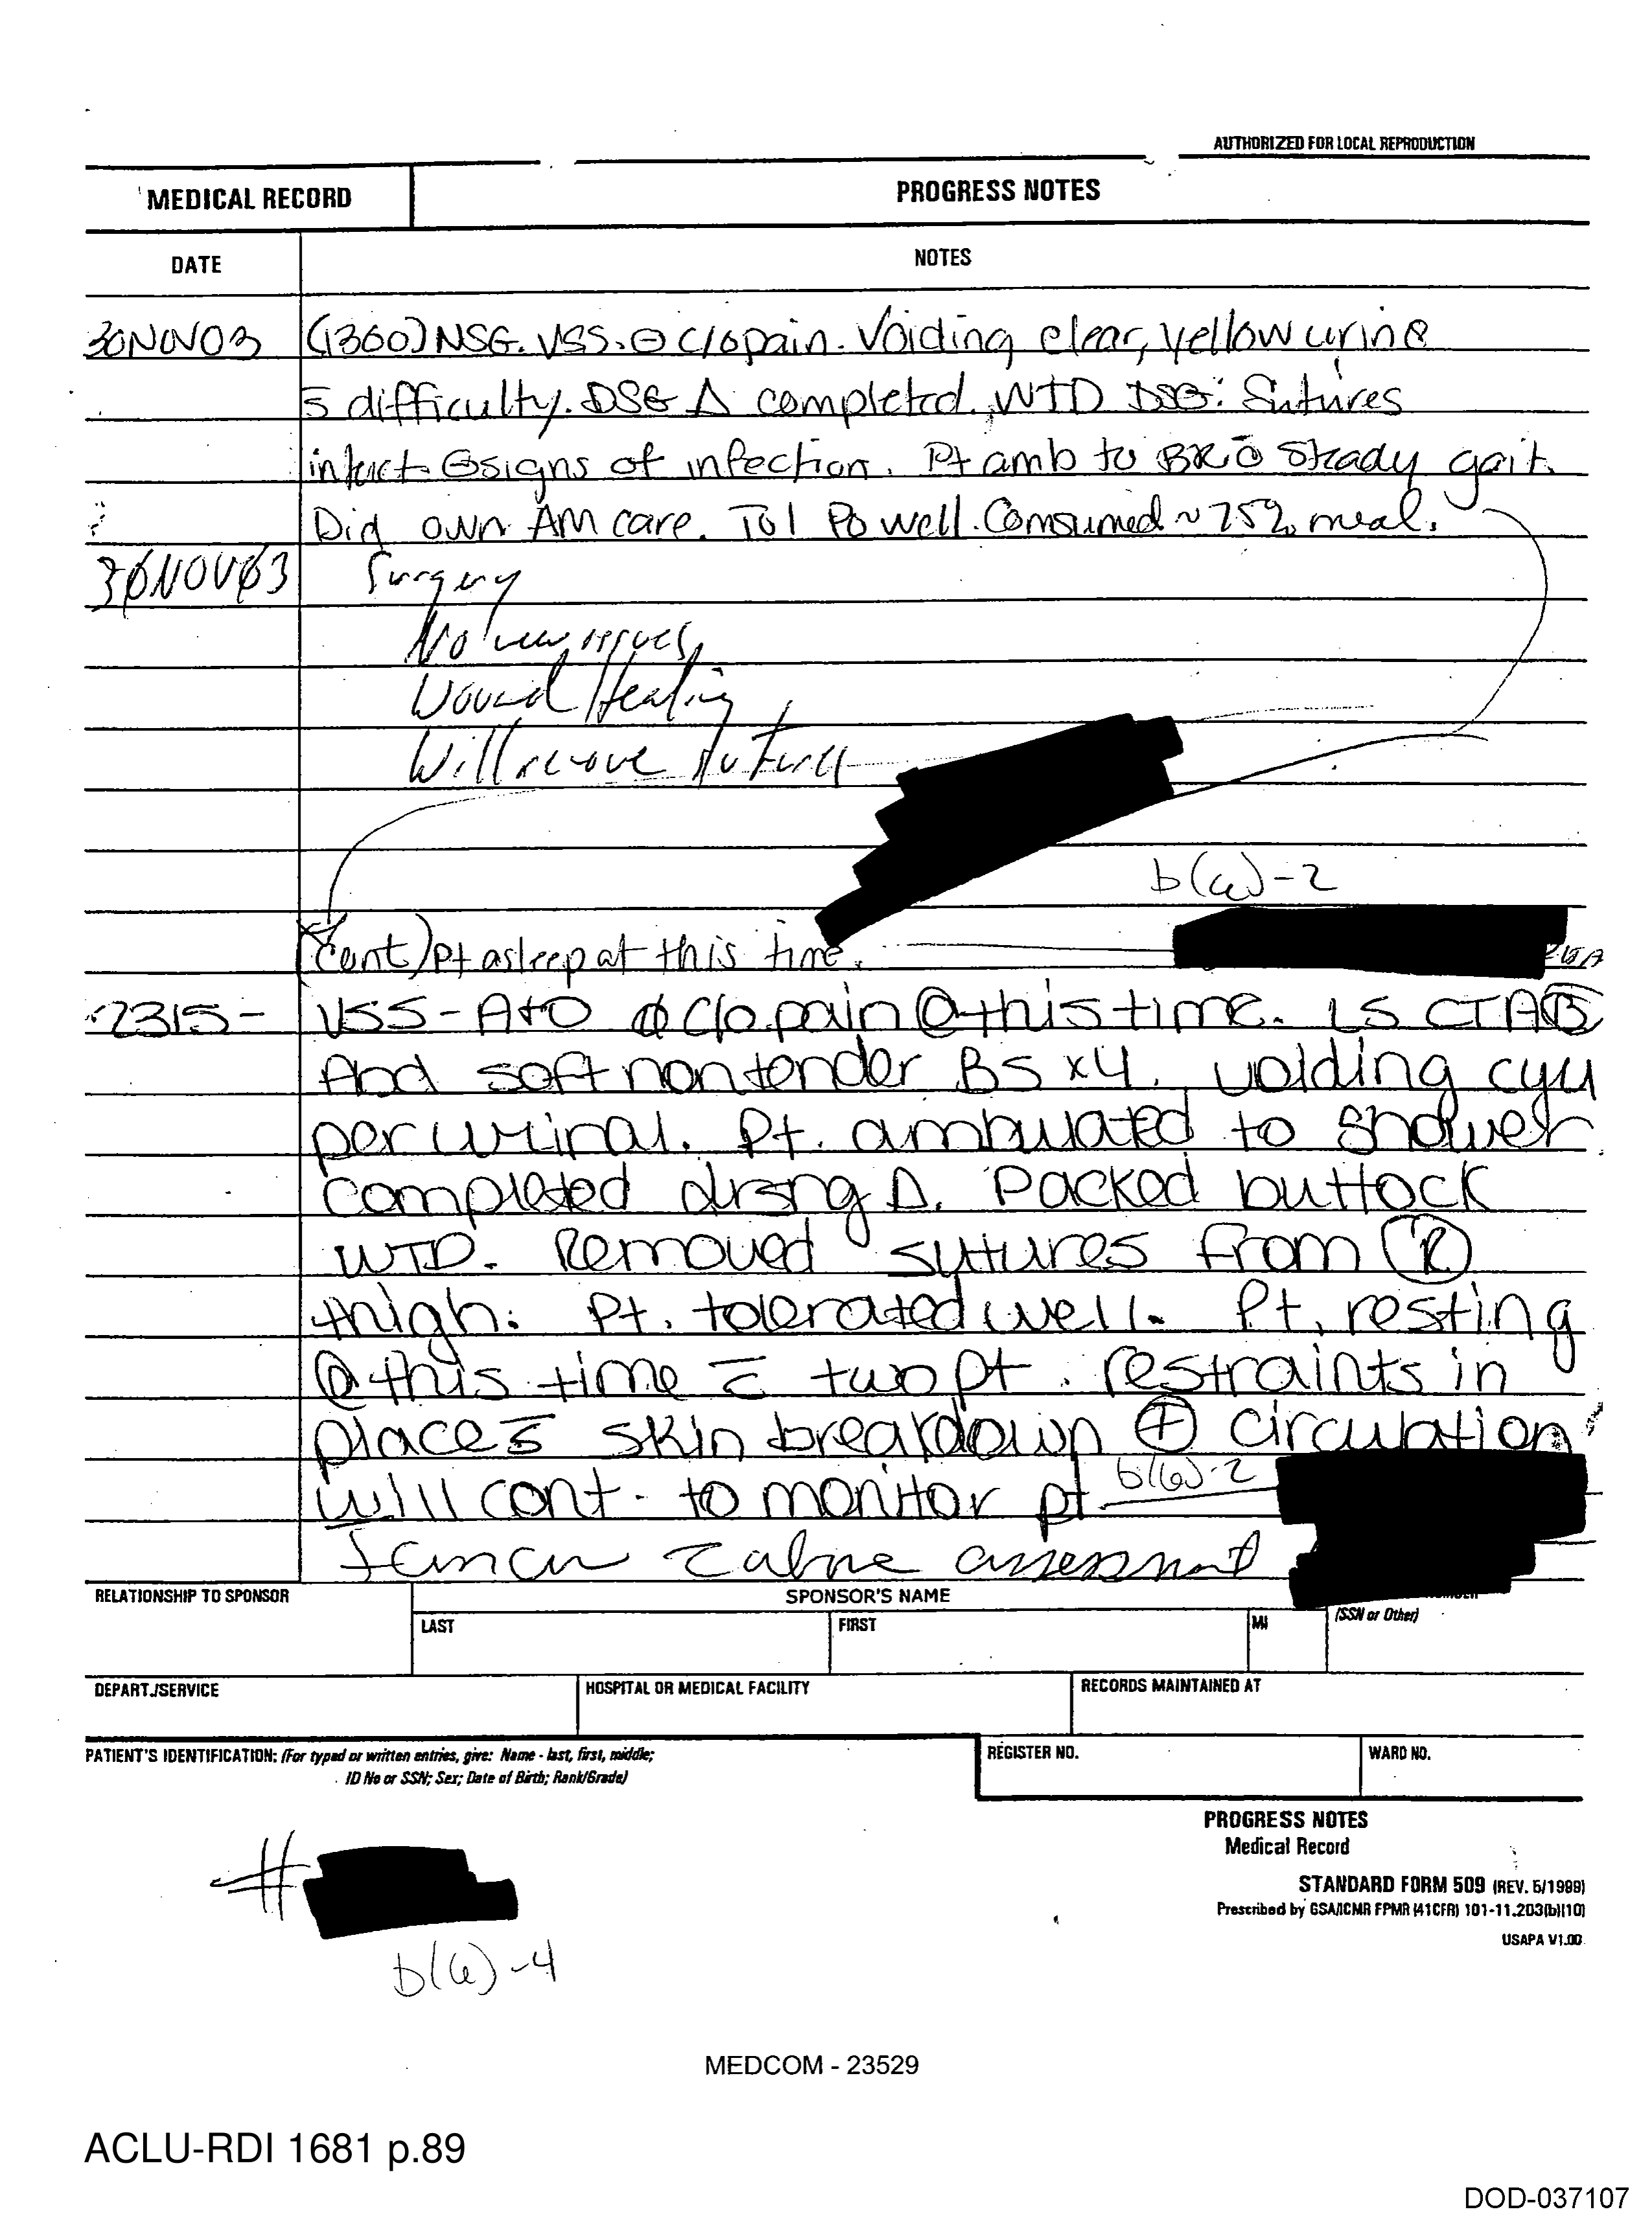 AUTHORIZED FOR LOCAL REPRODUCTION
MEDICAL RECORD
PROGRESS NOTES
DATE
NOTES
30NOV03 (1300) NSG. VSS. ⊖ c/o pain. Voiding clear, yellow urine
s̄ difficulty. DSG Δ completed. WTD DSG. Sutures
intact ⊖ signs of infection. Pt amb to BR c̄ steady gait.
Did own AM care. Tol Po well. Consumed ~75% meal.
30NOV03 Surgery
No new issues
Wound Healing
Will remove sutures
b(6)-2
(Cont) Pt asleep at this time.
2315- VSS - A+O ∅ c/o pain @ this time. LS CTAB
Abd soft nontender BS x4. voiding cyu
per urinal. Pt. ambulated to shower
completed drsng Δ. Packed buttock
WTD. Removed sutures from Ⓡ
thigh. Pt. tolerated well. Pt. resting
@ this time c̄ two pt. restraints in
place s̄ skin breakdown ⊕ circulation
will cont. to monitor pt b(6)-2
I concur c̄ above assessment
RELATIONSHIP TO SPONSOR
SPONSOR'S NAME
LAST
FIRST
MI
(SSN or Other)
DEPART./SERVICE
HOSPITAL OR MEDICAL FACILITY
RECORDS MAINTAINED AT
PATIENT'S IDENTIFICATION: (For typed or written entries, give: Name - last, first, middle;
ID No or SSN; Sex; Date of Birth; Rank/Grade)
REGISTER NO.
WARD NO.
PROGRESS NOTES
Medical Record
STANDARD FORM 509 (REV. 5/1999)
Prescribed by GSA/ICMR FPMR (41CFR) 101-11.203(b)(10)
USAPA V1.00
#
b(6)-4
MEDCOM - 23529
ACLU-RDI 1681 p.89
DOD-037107